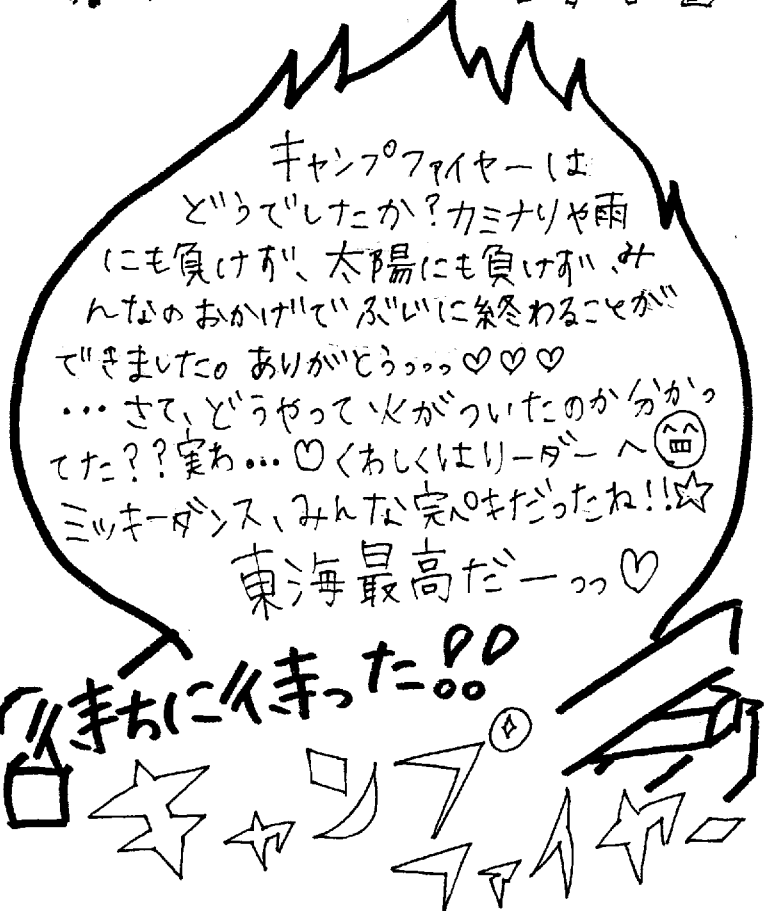 キャンプファイヤーは
どうでしたか?カミナリや雨
にも負けず、太陽にも負けず、み
んなのおかげでぶじに終わることが
できました。ありがとうっっっ♡♡♡
…さて、どうやって火がついたのか分かっ
てた??実わ…♡くわしくはリーダーへ
ミッキーダンス、みんな完ペキだったね!!☆
東海最高だーっっ♡
待ちに待った!!
キャンプ
ファイヤー